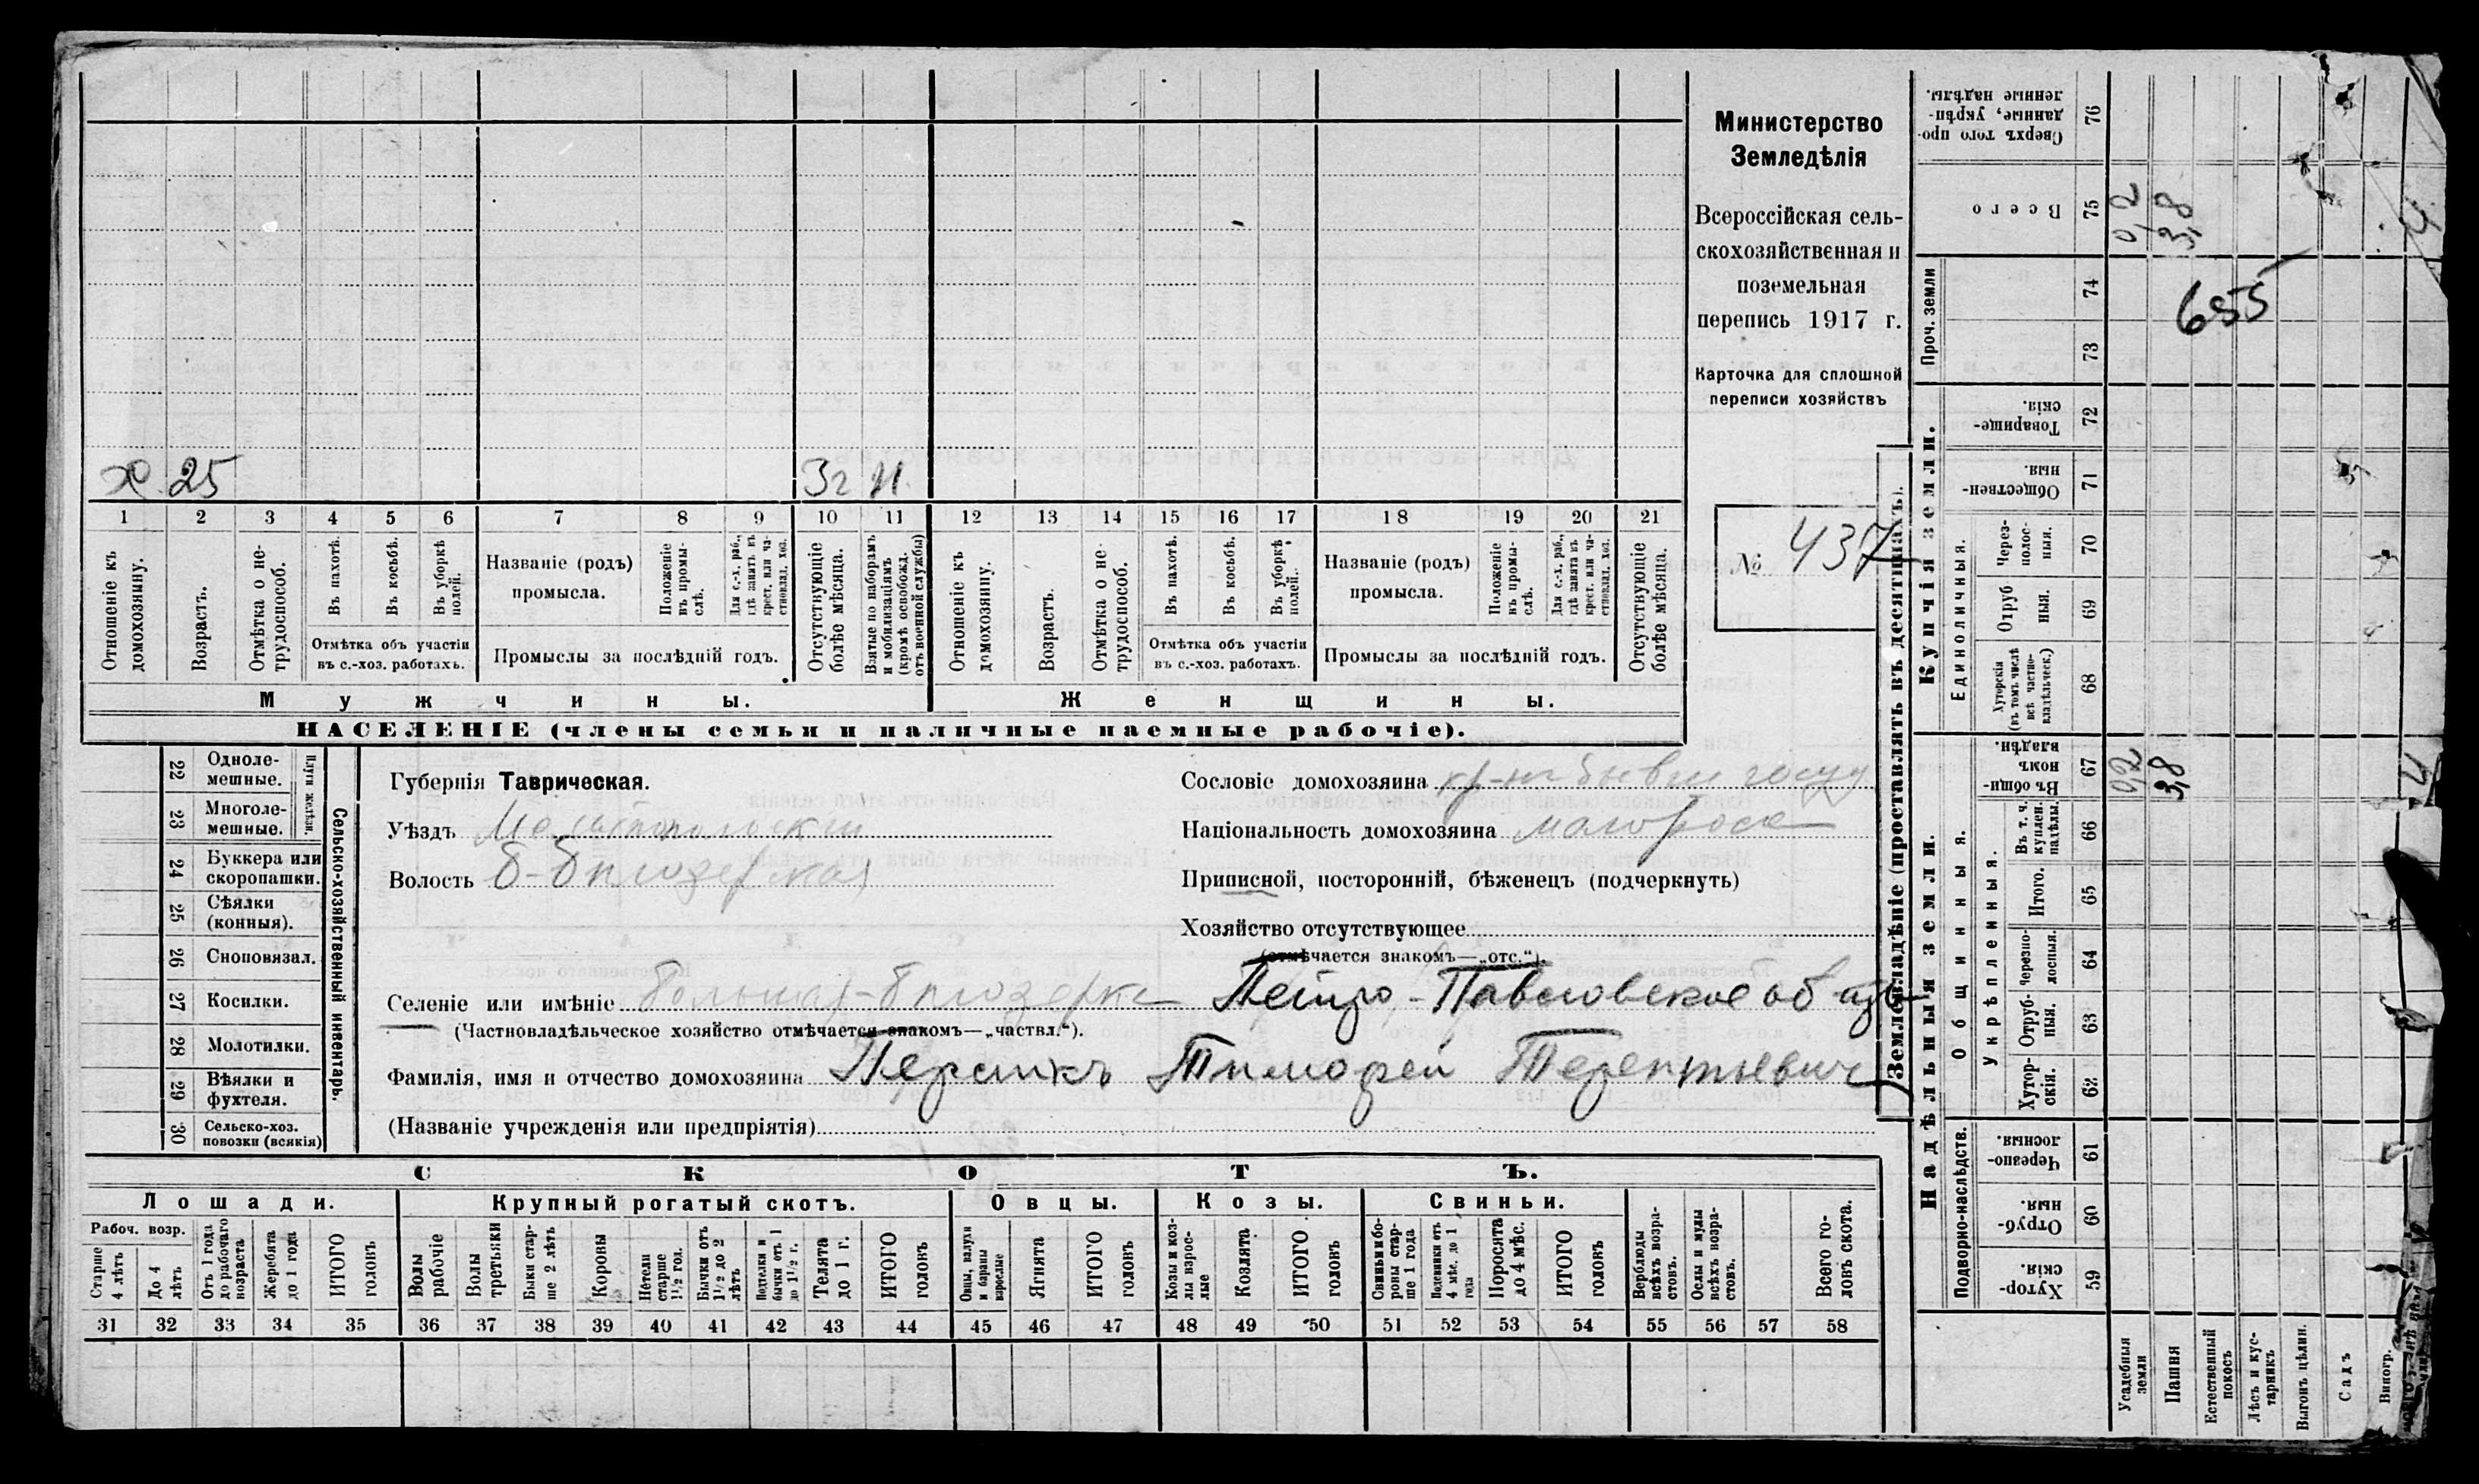 х. 25 3г М.
1 2 3 4 5 6 7 8 9 10 11 12 13 14 15 16 17 18 19 20 21
Отношеніе къ домохозяину.
Возрастъ.
Отмѣтка о не-
трудоспособ.
Въ пахотѣ.
Въ косьбѣ.
Въ уборкѣ полей.
Отмѣтка объ участіи
въ с.-хоз. работахъ.
Названіе (родъ)
промысла.
Положеніе въ промы-
слѣ.
Для с.-х. раб., гдѣ занятъ въ крест. или ча-
стновлад. хоз.
Промыслы за послѣдній годъ.
Отсутствующіе болѣе мѣсяца.
Взятые по наборамъ и мобилизаціямъ (кромѣ освобожд. отъ военной службы)
Отношеніе къ домохозяину.
Возрастъ.
Отмѣтка о не-
трудоспособ.
Въ пахотѣ.
Въ косьбѣ.
Въ уборкѣ полей.
Отмѣтка объ участіи
въ с.-хоз. работахъ.
Названіе (родъ)
промысла.
Положеніе въ промы-
слѣ.
Для с.-х. раб., гдѣ занята въ крест. или ча-
стновлад. хоз.
Промыслы за послѣдній годъ.
Отсутствующіе болѣе мѣсяца.
Мужчины.
Женщины.
НАСЕЛЕНІЕ (члены семьи и наличные наемные рабочіе).
Министерство
Земледѣлія
Всероссійская сель-
скохозяйственная и
поземельная
перепись 1917 г.
Карточка для сплошной
переписи хозяйствъ
№ 437
22 Одноле-
мешные.
23 Многоле-
мешные.
Плуги желѣзн.
24 Буккера или
скоропашки.
25 Сѣялки
(конныя).
26 Сноповязал.
27 Косилки.
28 Молотилки.
29 Вѣялки и
фухтеля.
30 Сельско-хоз.
повозки (всякія)
Сельско-хозяйственный инвентарь.
Губернія Таврическая.
Уѣздъ Мелитопольскій
Волость Б-Бѣлозерская
Сословіе домохозяина кр-нъ бывш госуд
Національность домохозяина малоросс
Приписной, посторонній, бѣженецъ (подчеркнуть)
Хозяйство отсутствующее
(отмѣчается знакомъ—„отс.“).
Селеніе или имѣніе Большая-Бѣлозерка Петро-Павловское об-во
(Частновладѣльческое хозяйство отмѣчается знакомъ—„частвл.“).
Фамилія, имя и отчество домохозяина Тимофей Терентьевич
(Названіе учрежденія или предпріятія)
СКОТЪ.
Лошади. Крупный рогатый скотъ. Овцы. Козы. Свиньи.
Рабоч. возр.
Старше 4 лѣтъ
До 4 лѣтъ
Отъ 1 года до рабочаго возраста
Жеребята до 1 года
ИТОГО головъ
Волы рабочіе
Волы третьяки
Быки стар-
ше 2 лѣтъ
Коровы
Нетели старше 1½ год.
Бычки отъ 1½ до 2 лѣтъ
Подтелки и бычки отъ 1 до 1½ г.
Телята до 1 г.
ИТОГО головъ
Овцы, валухи и бараны взрослые
Ягнята
ИТОГО головъ
Козы и коз-
лы взрос-
лые
Козлята
ИТОГО головъ
Свиньи и бо-
ровы стар-
ше 1 года
Подсвинки отъ 4 мѣс. до 1 года
Поросята до 4 мѣс.
ИТОГО головъ
Верблюды всѣхъ возра-
стовъ.
Ослы и мулы всѣхъ возра-
стовъ.
Всего го-
ловъ скота.
31 32 33 34 35 36 37 38 39 40 41 42 43 44 45 46 47 48 49 50 51 52 53 54 55 56 57 58
Землевладѣніе (проставлять въ десятинахъ).
Сверхъ того про-
данные, укрѣп-
ленные надѣлы. 76
Всего 75 0,2 3,8
Проч. земли
74 655
73
Купчія земли.
Товарище-
скія. 72
Обществен-
ныя. 71
Единоличныя.
Через-
полос-
ныя. 70
Отруб
ныя. 69
Хуторскія (въ томъ числѣ всѣ частно-
владѣльческ.) 68
Надѣльныя земли.
Общинныя.
Въ общи
номъ
владѣн. 67 0,2 3,8
Укрѣпленныя.
Въ т. ч. куплен. надѣлы. 66
Итого. 65
Черезпо-
лосныя. 64
Отруб-
ныя. 63
Хутор-
скія. 62
Подворно-наслѣдств.
Черезпо-
лосныя. 61
Отруб-
ныя. 60
Хутор-
скія. 59
Усадебныя земли
Пашня
Естественный покосъ
Лѣсъ и кус-
тарникъ
Выгонъ цѣлин.
Садъ
Виногр.